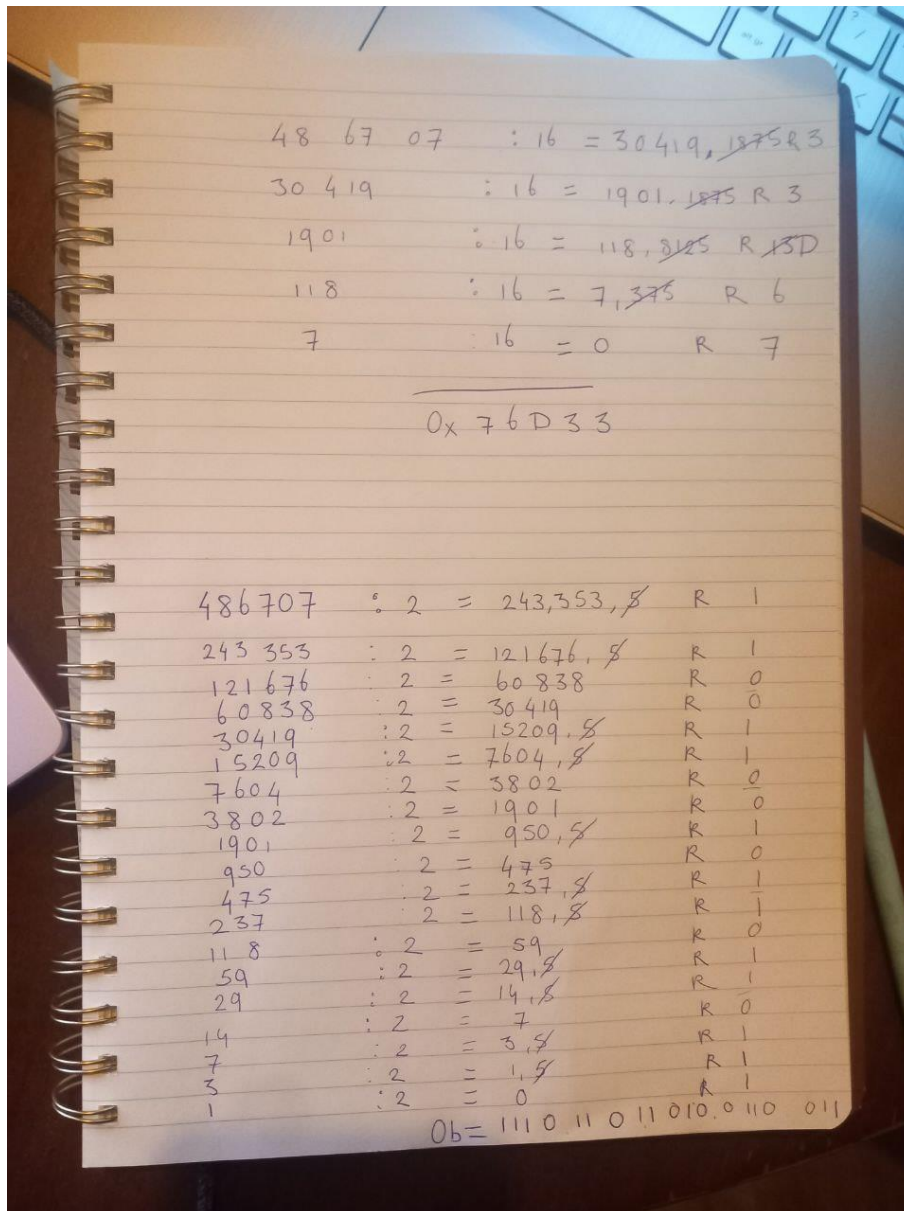 48 67 07 : 16 = 30419,1875 R 3
30 419 : 16 = 1901.1875 R 3
1901 : 16 = 118,8125 R 13D
118 : 16 = 7,375 R 6
7 : 16 = 0 R 7
0x 76D33
486707 : 2 = 243,353,5 R 1
243 353 : 2 = 121676,5 R 1
121676 : 2 = 60838 R 0
60838 : 2 = 30419 R 0
30419 : 2 = 15209,5 R 1
15209 : 2 = 7604,5 R 1
7604 : 2 = 3802 R 0
3802 : 2 = 1901 R 0
1901 : 2 = 950,5 R 1
950 : 2 = 475 R 0
475 : 2 = 237,5 R 1
237 2 = 118,5 R 1
118 : 2 = 59 R 0
59 : 2 = 29,5 R 1
29 : 2 = 14,5 R 1
14 : 2 = 7 R 0
7 : 2 = 3,5 R 1
3 : 2 = 1,5 R 1
1 : 2 = 0 R 1
0b= 1110 11 0 11 010.0 110 011